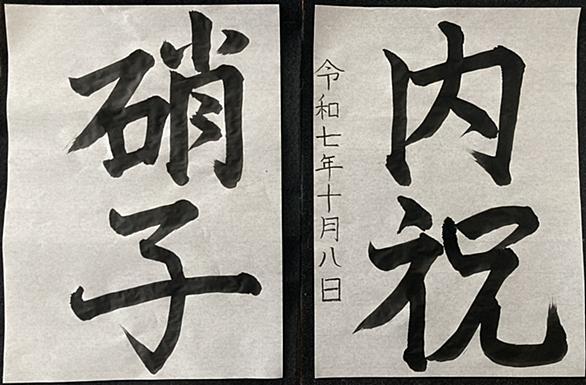 内祝
令和七年十月八日
硝子